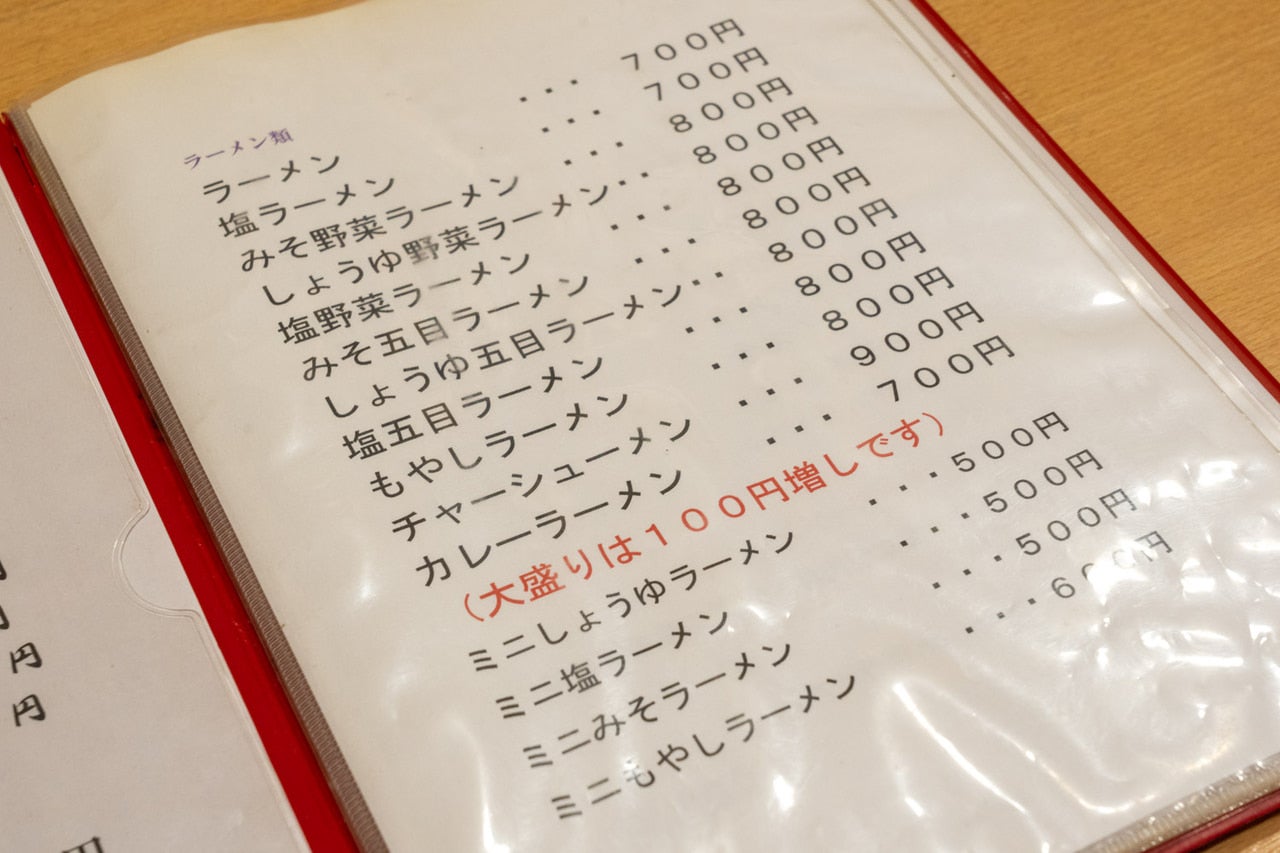 ラーメン類
ラーメン ・・・ ７００円
塩ラーメン ・・・ ７００円
みそ野菜ラーメン ・・・ ８００円
しょうゆ野菜ラーメン・・ ８００円
塩野菜ラーメン ・・・ ８００円
みそ五目ラーメン ・・・ ８００円
しょうゆ五目ラーメン・・ ８００円
塩五目ラーメン ・・・ ８００円
もやしラーメン ・・・ ８００円
チャーシューメン ・・・ ９００円
カレーラーメン ・・・ ７００円
（大盛りは１００円増しです）
ミニしょうゆラーメン ・・・５００円
ミニ塩ラーメン ・・・５００円
ミニみそラーメン ・・・５００円
ミニもやしラーメン ・・・６００円
円
円